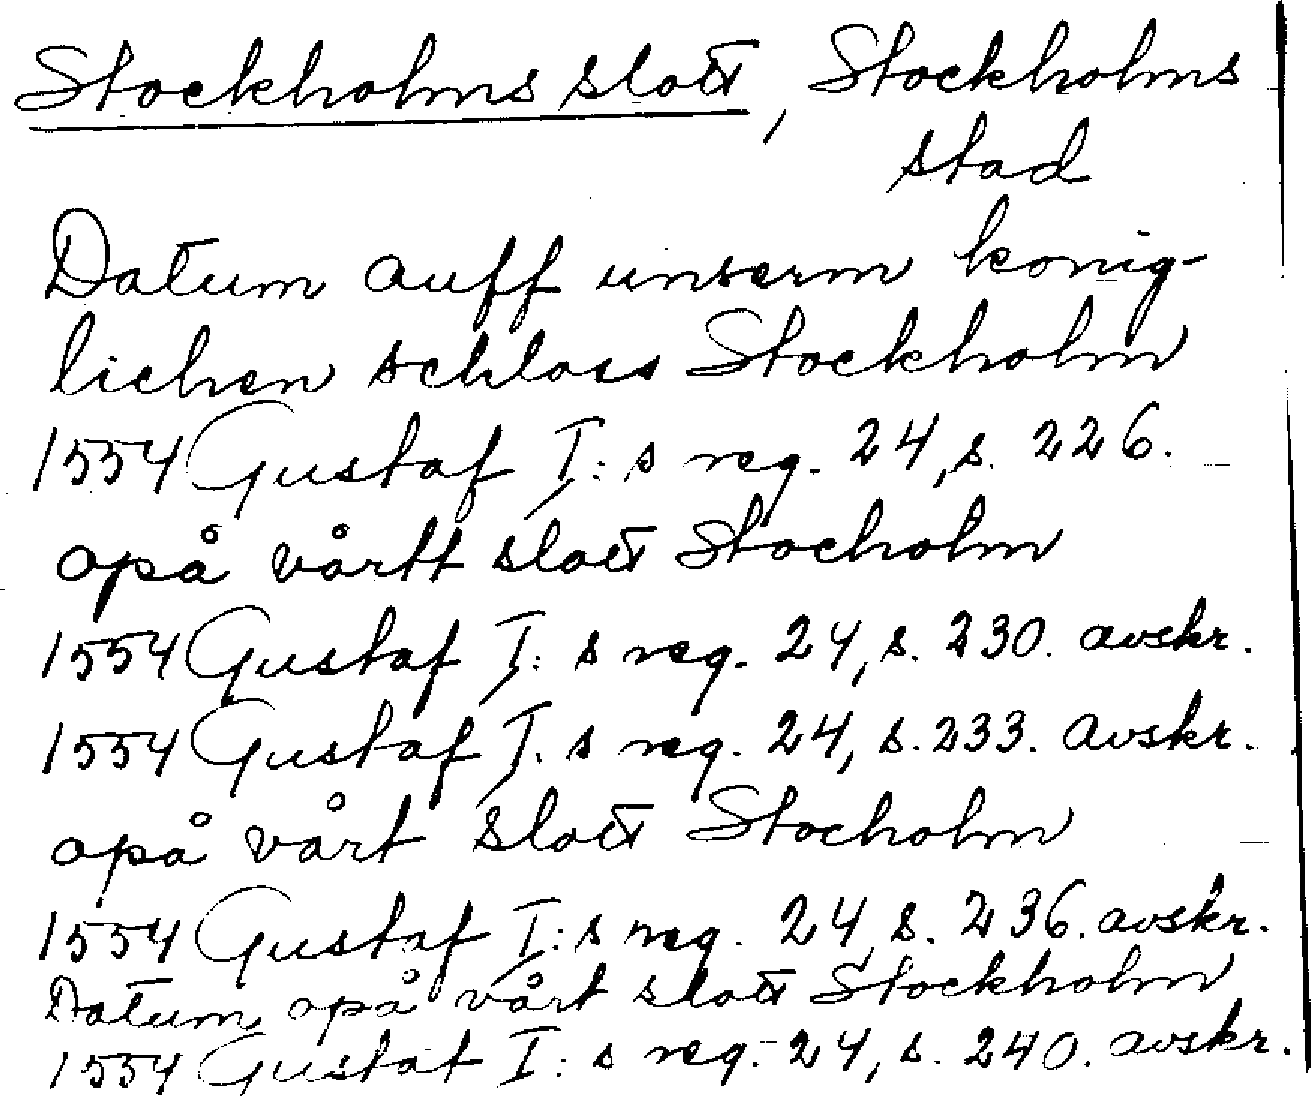 Stockholms slott, Stockholms
stad
Datum auff unserm konig-
lichen schloss Stockholm
1554 Gustaf I:s reg. 24, s. 226.
opå vårtt slott Stocholm
1554 Gustaf I:s reg. 24, s. 230. avskr.
1554 Gustaf I:s reg. 24, s. 233. avskr.
opå vårt slott Stocholm
1554 Gustaf I:s reg. 24, s. 236. avskr.
Datum opå vårt slott Stockholm
1554 Gustaf I:s reg. 24, s. 240. avskr.